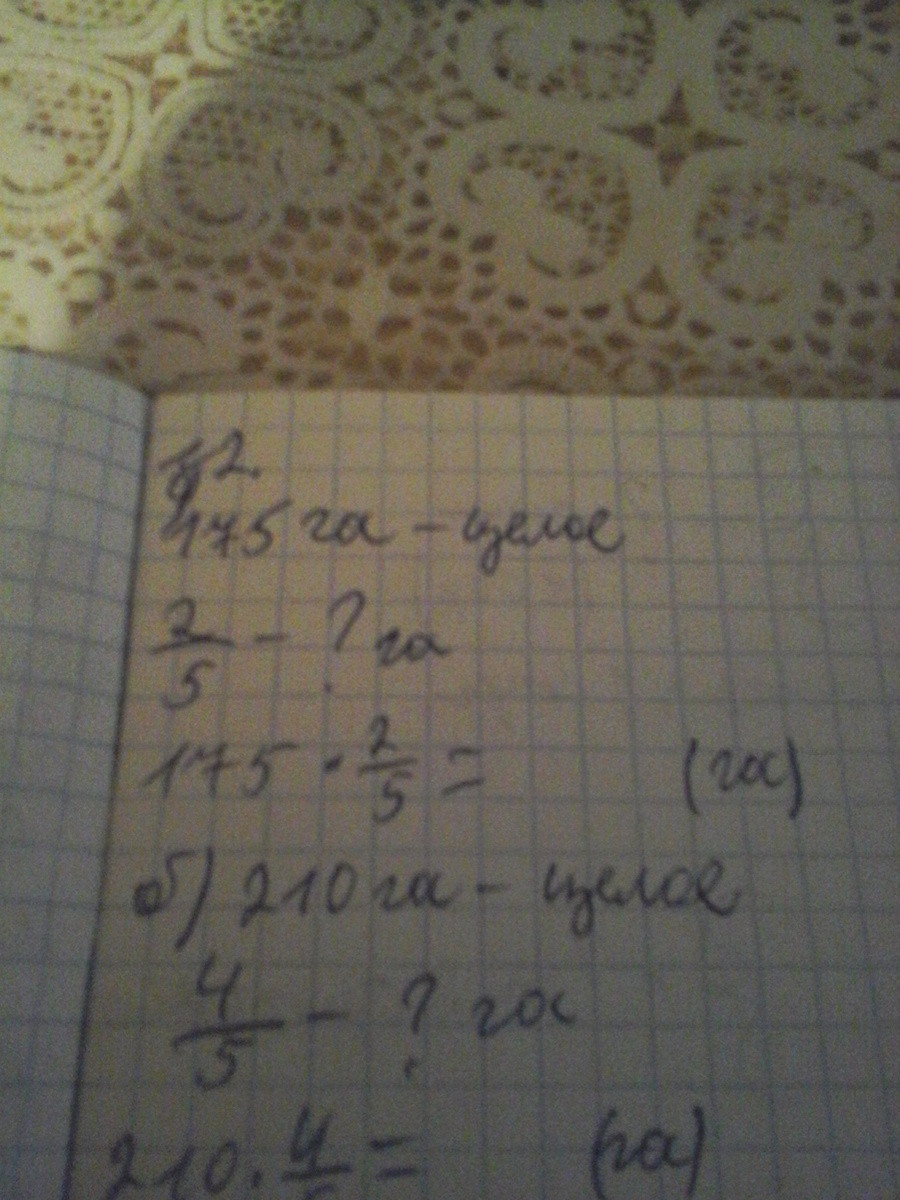 №2.
175 га - целое
2/5 - ? га
175 · 2/5 = (га)
б) 210 га - целое
4/5 - ? га
210 · 4/5 = (га)